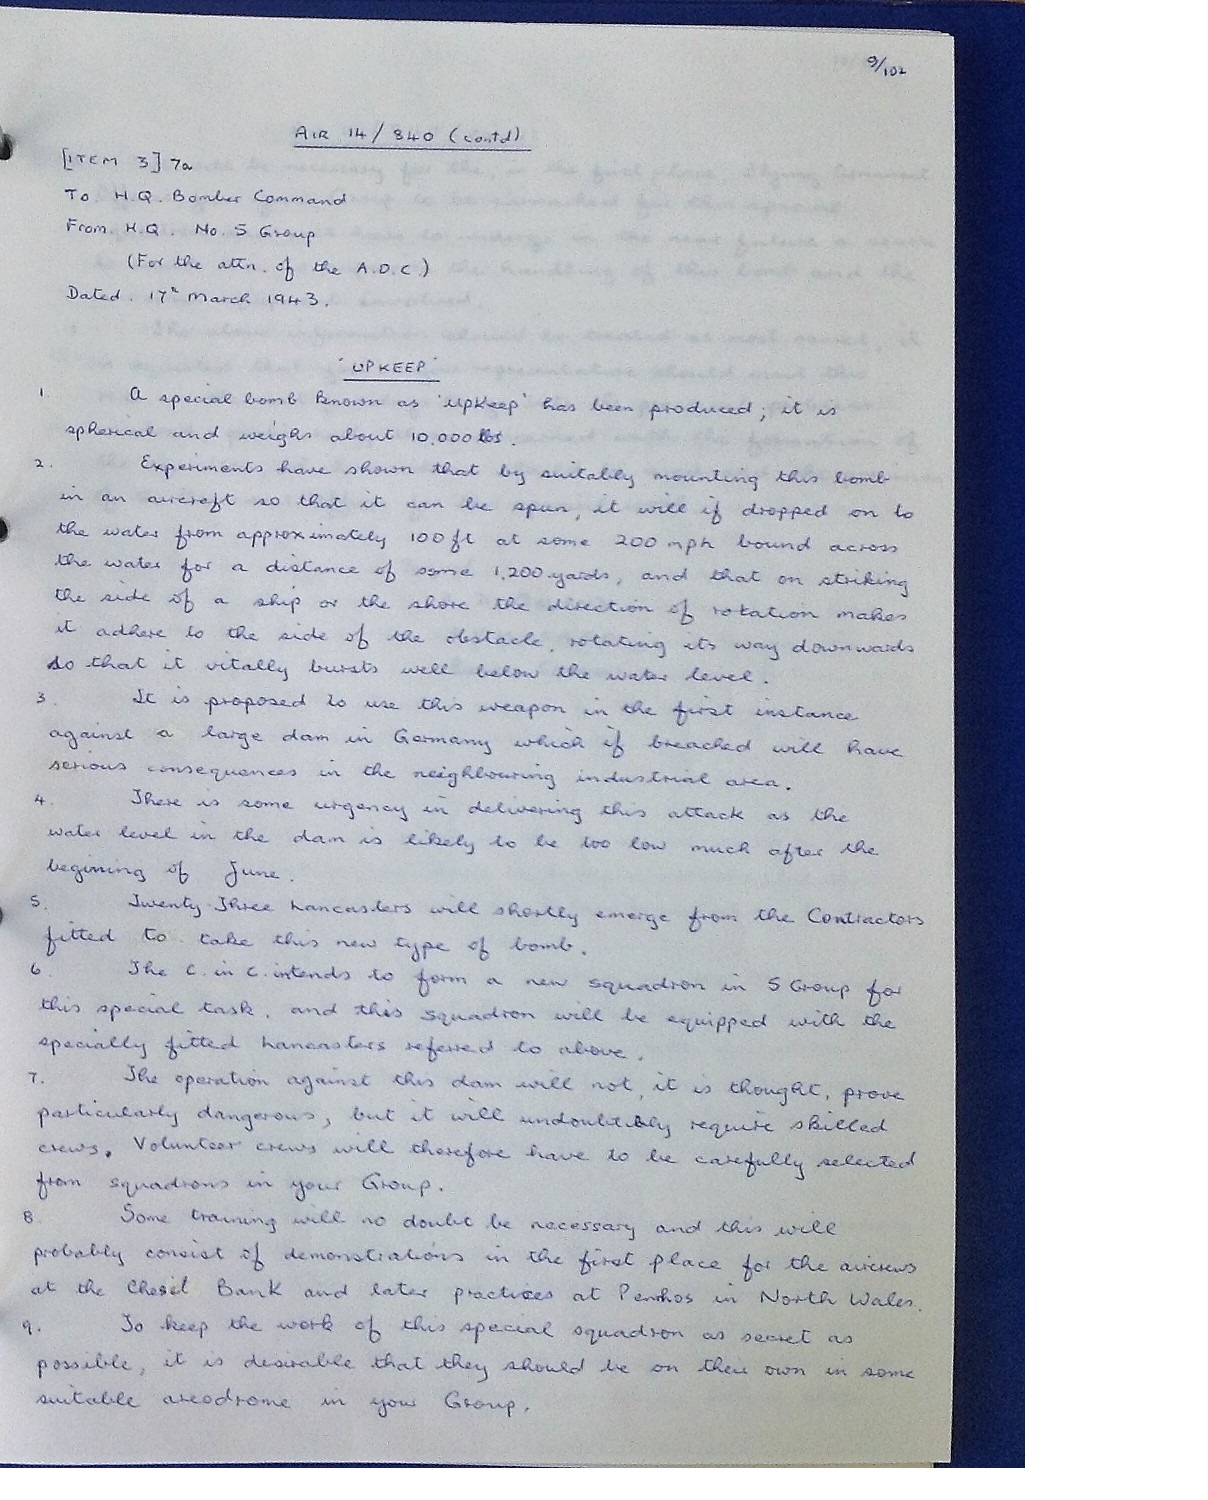 9/102
AIR 14/840 (contd)
[ITEM 3] 7a
To H.Q. Bomber Command
From H.Q. No. 5 Group
(For the attn. of the A.O.C.)
Dated. 17th March 1943.
'UPKEEP'
1. A special bomb known as 'upkeep' has been produced; it is
spherical and weighs about 10,000 lbs.
2. Experiments have shown that by suitably mounting this bomb
in an aircraft so that it can be spun, it will if dropped on to
the water from approximately 100 ft at some 200 mph bound across
the water for a distance of some 1,200 yards, and that on striking
the side of a ship or the shore the direction of rotation makes
it adhere to the side of the obstacle, rotating its way downwards
so that it vitally bursts well below the water level.
3. It is proposed to use this weapon in the first instance
against a large dam in Germany which if breached will have
serious consequences in the neighbouring industrial area.
4. There is some urgency in delivering this attack as the
water level in the dam is likely to be too low much after the
begining of June.
5. Twenty Three Lancasters will shortly emerge from the Contractors
fitted to take this new type of bomb.
6. The C. in C. intends to form a new squadron in 5 Group for
this special task, and this squadron will be equipped with the
specially fitted Lancasters referred to above.
7. The operation against this dam will not, it is thought, prove
particularly dangerous, but it will undoubtibly require skilled
crews. Volunteer crews will therefore have to be carefully selected
from squadrons in your Group.
8. Some training will no doubt be necessary and this will
probably consist of demonstrations in the first place for the aircrews
at the Chesil Bank and later practices at Penrhos in North Wales.
9. To keep the work of this special squadron as secret as
possible, it is desirable that they should be on their own in some
suitable areodrome in your Group.